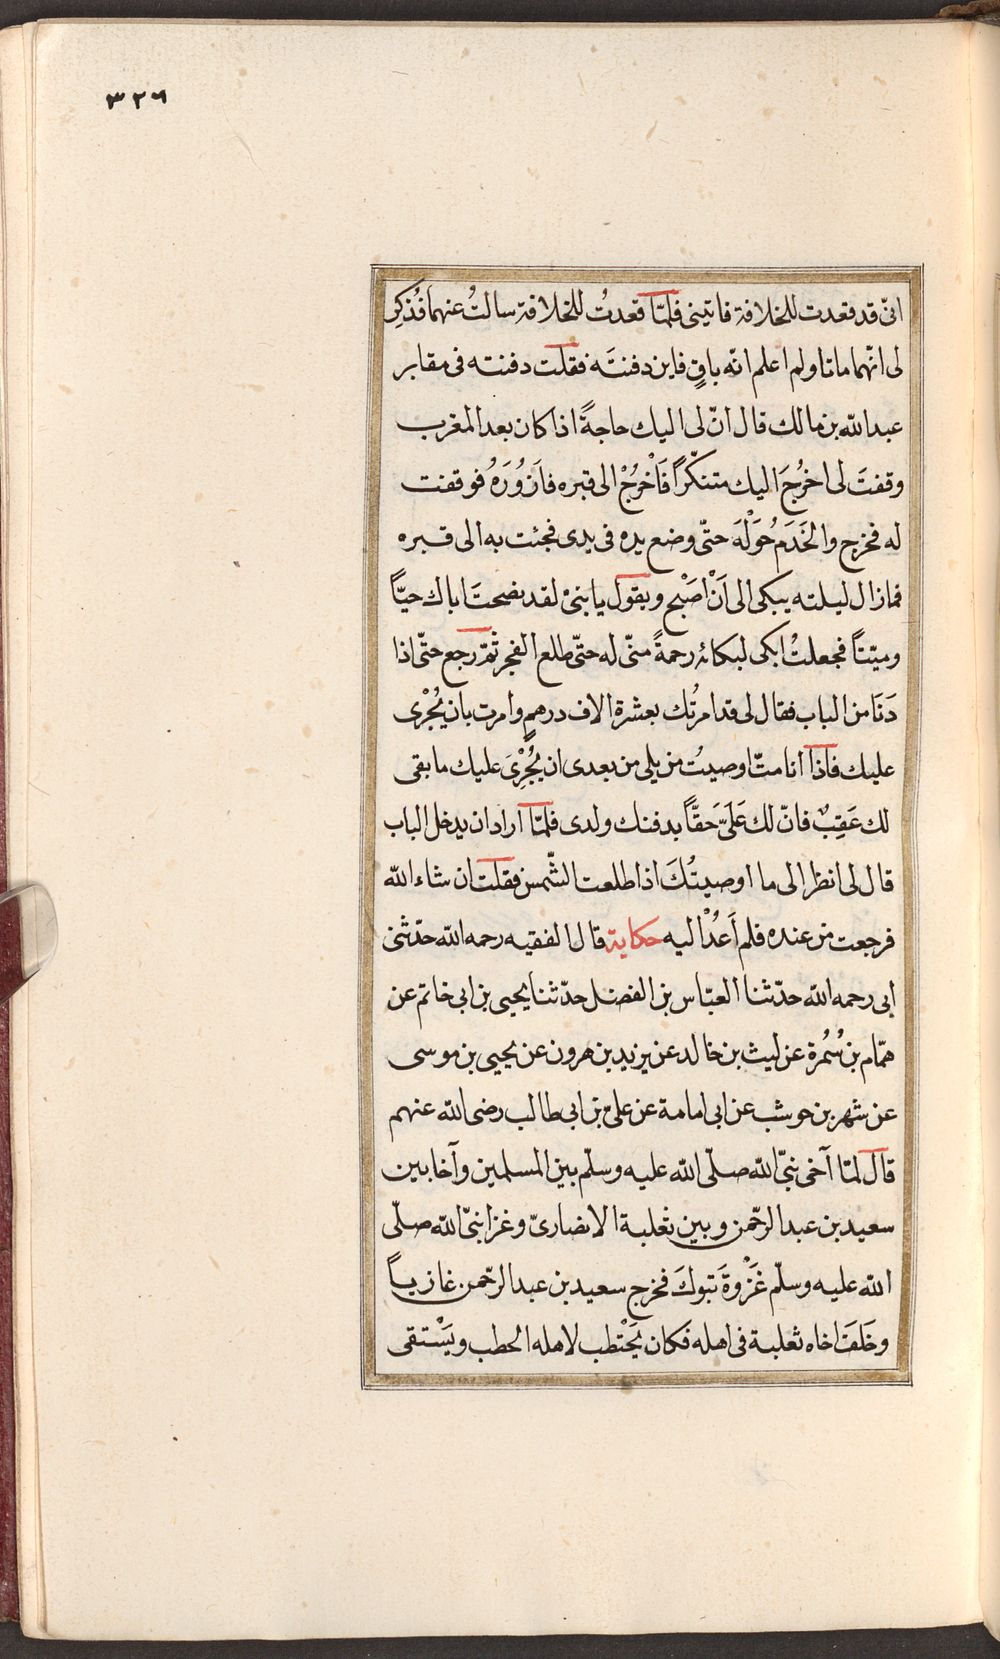 ٣٢٦
انّى قد قعدت للخلافة فاتينى فلمّا قعدتُ للخلافة سالتُ عنهما فذُكِر
لى انّهما ماتا ولم اعلم انّه باقٍ فاين دفنتَه فقلت دفنته فى مقابر
عبد الله بن مالك قال انّ لى اليك حاجةً اذا كان بعد المغرب
وقفتَ لى اخرُجَ اليك متنكّراً فَاَخْرُجُ الى قبره فاَزُورَهُ فوقفت
له فخرج والخَدَم حَوْلَهَ حتّى وضع يده فى يدى فجئت به الى قبره
فمازال ليلته يبكى الى اَنْ اَصْبح ويقول يا بنىْ لقد نصحتَ اباك حيّاً
وميّتاً فجعلتُ ابكى لبكائه رحمةً منّى له حتّى طلع الفجر ثمّ رجع حتّى اذا
دَنَا من الباب فقال لى قد امرتُك بعشرة الاف درهمٍ وامرت بان يُجْرى
عليك فاذا انا متّ اوصيتُ من يلى من بعدى ان يُجْرِىَ عليك ما بقى
لك عَقِبٌ فانّ لك عَلَىّ حَقّاً بدفنك ولدى فلمّا اراد ان يدخل الباب
قال لى انظر الى ما اوصيتُكَ اذا طلعت الشّمس فقلت ان شاء الله
فرجعت من عنده فلم اَعُدْ اليه حكاية قال الفقيه رحمه الله حدّثنى
ابى رحمه الله حدّثنا العبّاس بن الفضل حدّثنا يحيى بن ابى خاتم عن
همّام بن سُمُرة عن ليث بن خالد عن يزيد بن هرون عن يحيى بن موسى
عن شهر بن حوشب عن ابى امامة عن علىّ بن ابى طالب رضى الله عنهم
قال لمّا آخى نبىّ الله صلّى الله عليه وسلّم بين المسلمين وآخا بين
سعيد بن عبد الرحّمن وبين ثعلبة الانصارىّ وغزا نبىّ الله صلّى
الله عليه وسلّم غَزْوةَ تبوكَ فخرج سعيد بن عبد الرحّمن غازياً
وخَلَفَ اخاه ثعلبة فى اهله فكان يَحْتطب لاهله الحطب ويَسْتقى